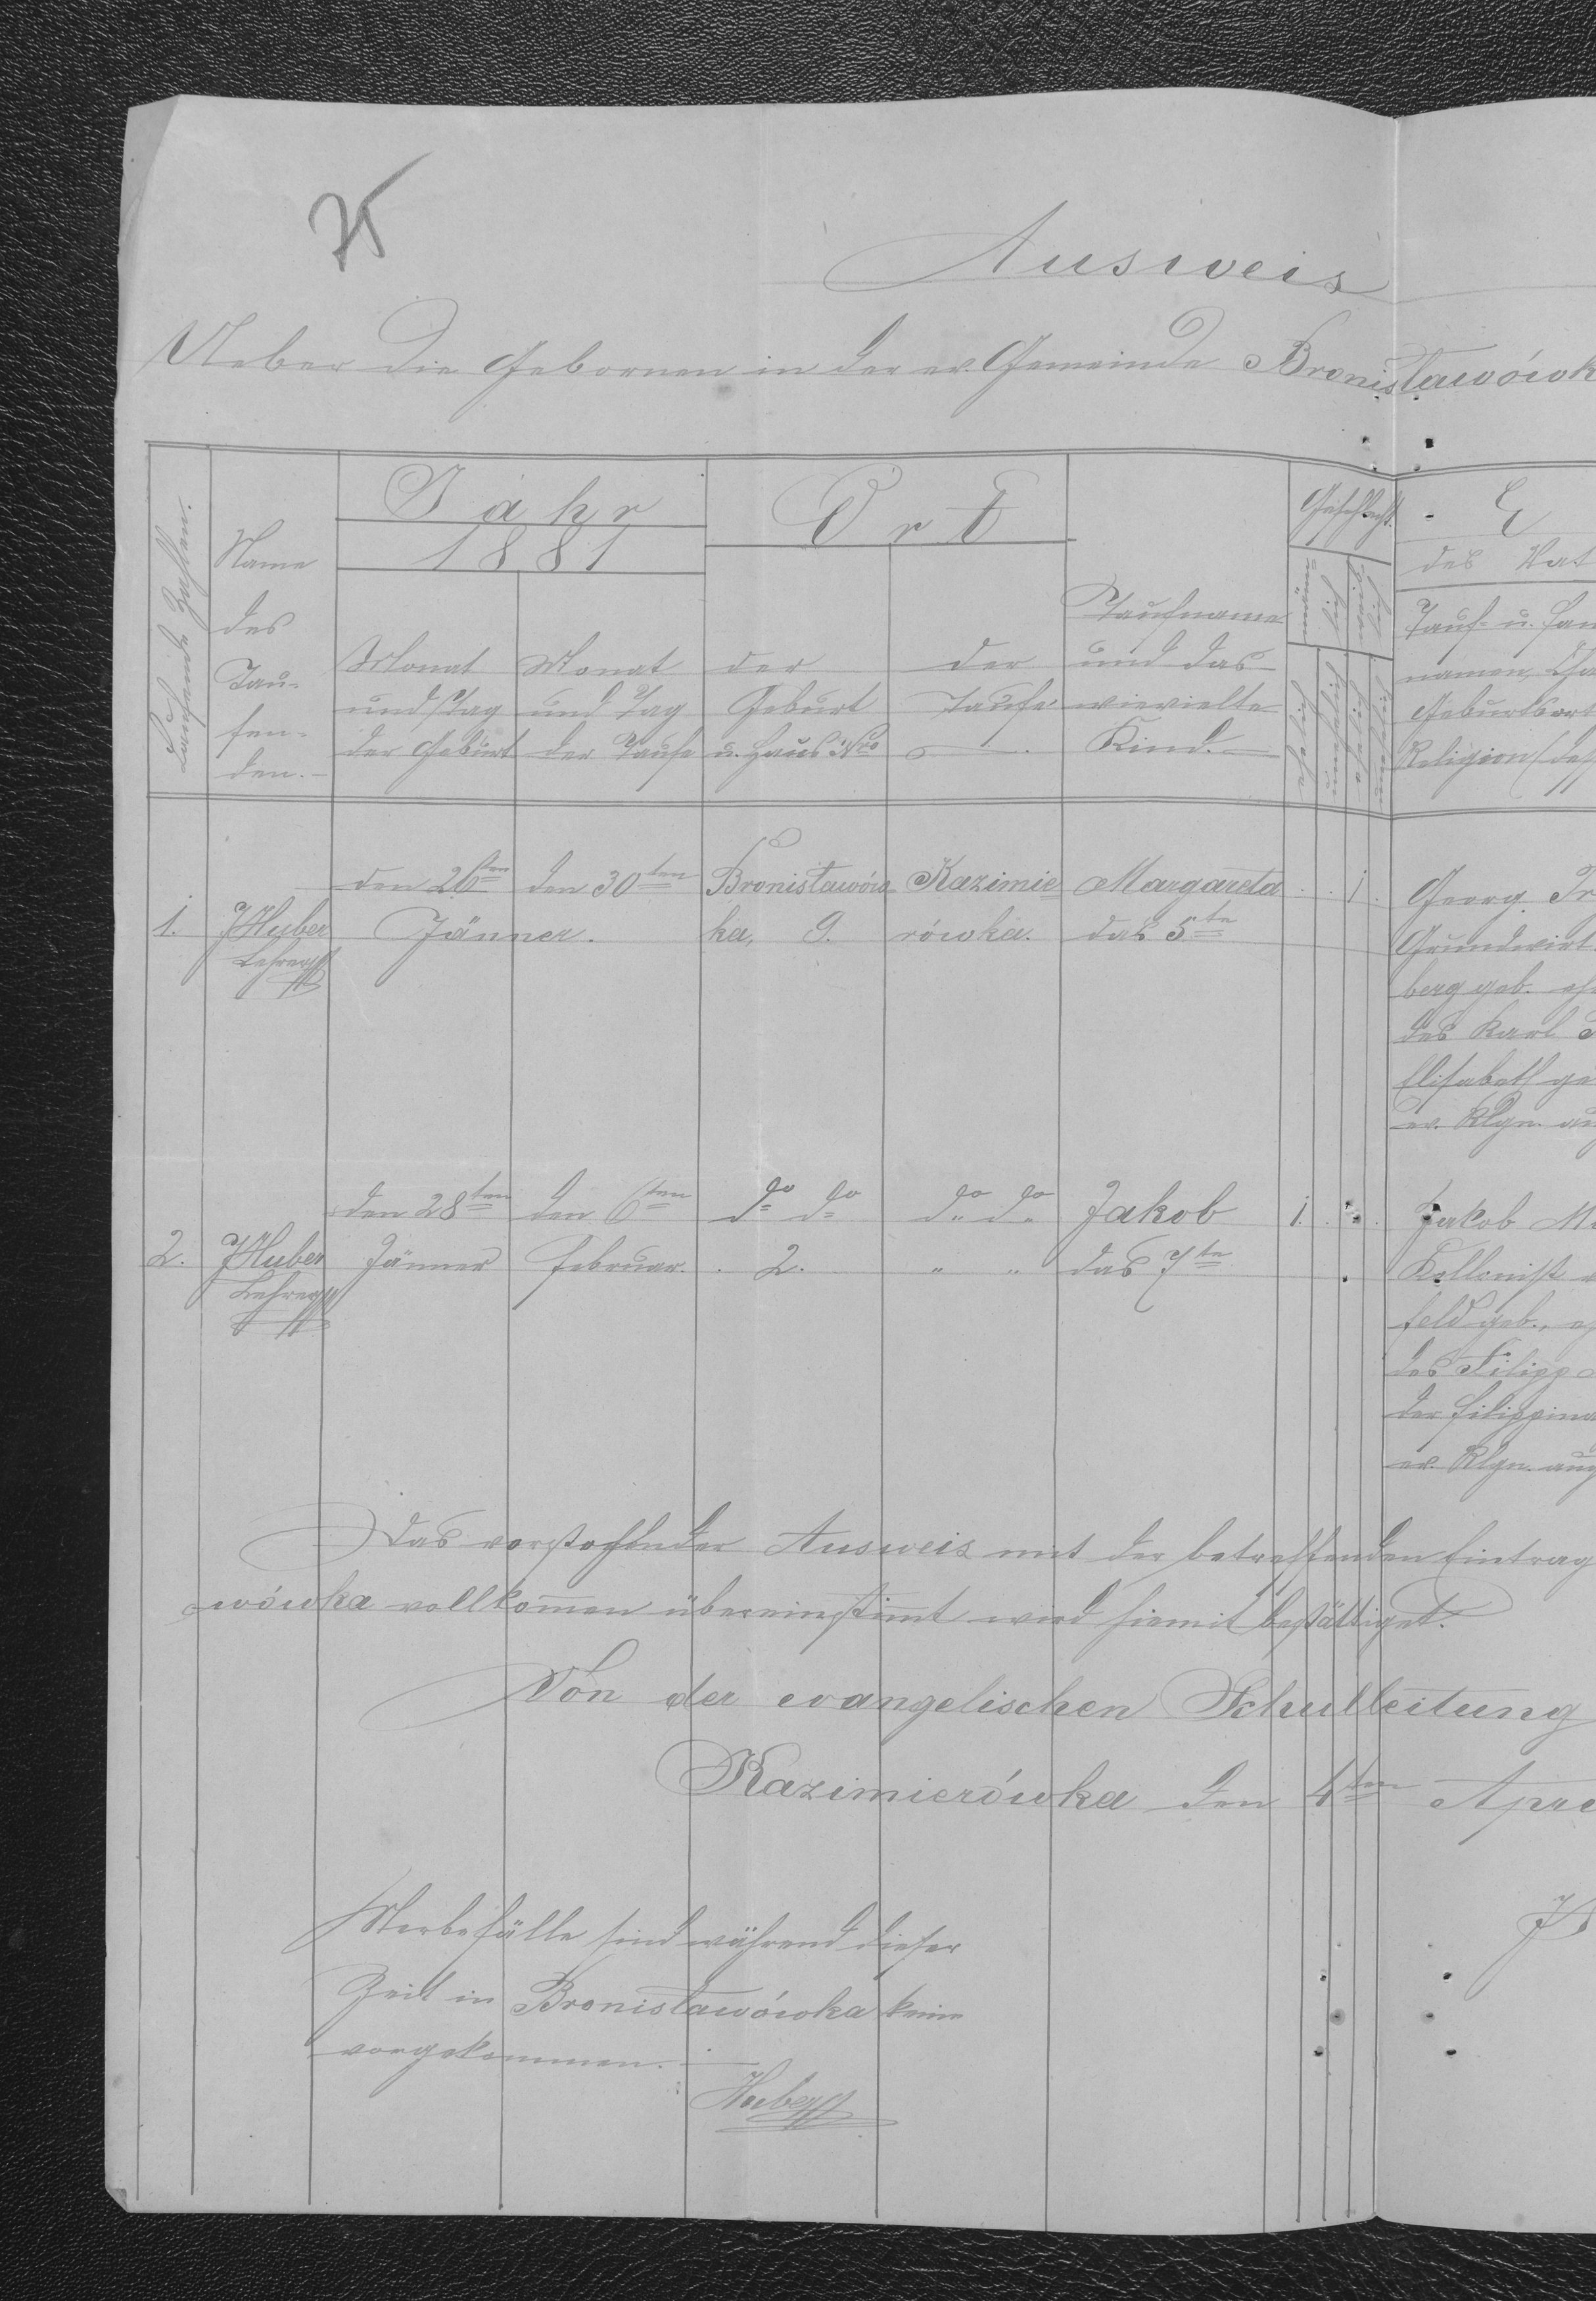 75
Ausweis
Ueber die Gebornen in der ev. Gemeinde Bronisławówk
Laufende Zahlen.
Name
des
Tau-
fen-
den.
Jahr
1881
Monat
und Tag
der Geburt
Monat
und Tag
der Taufe
Ort
der
Geburt
u. Haus Nro
der
Taufe
Taufname
und das
wievielte
Kind.
Geschlecht.
männ-
lich
weib-
lich
ehelich
unehelich
ehelich
unehelich
E
des Vat
Tauf- u. Fam
namen, Cha
Geburtsort
Religion des
1.
JHuber
Lehrer
den 26ten
den 30ten
Jänner.
Bronisławów-
ka, 9.
Kazimie-
rówka.
Margareta
das 5te
1.
Georg
Grundwirt
berg geb. eh
des Karl
Elisabeth ge
ev. Rlgn. au
2.
JHuber
Lehrer
den 28ten
Jänner
den 6ten
Februar.
do do
2.
do do
" "
Jakob
das 7te
1.
Jakob
Kollonist
feld geb., eh
des Filipp
der Filippina
ev. Rlgn. aug
Das vorstehender Ausweis mit der betreffenden Eintrag
wówka vollkomen übereinstimt wird hiemit bestättiget.
Von der evangelischen Schulleitung
Kazimierówka den 4ten Apri
Sterbefälle sind während dieser
Zeit in Bronisławówka keine
vorgekommen.
Huber